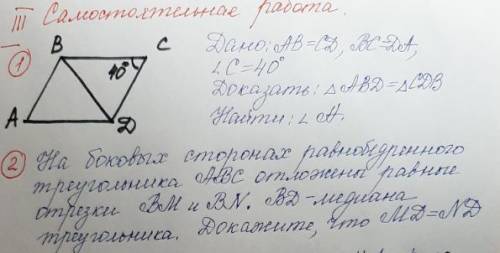 III Самостоятельная работа.
1 Дано: AB=CD, BC=DA,
∠C=40°
Доказать: △ABD=△CDB
Найти: ∠A.
B C
40°
A D
2 На боковых сторонах равнобедренного
треугольника ABC отложены равные
отрезки BM и BN. BD-медиана
треугольника. Докажите, что MD=ND